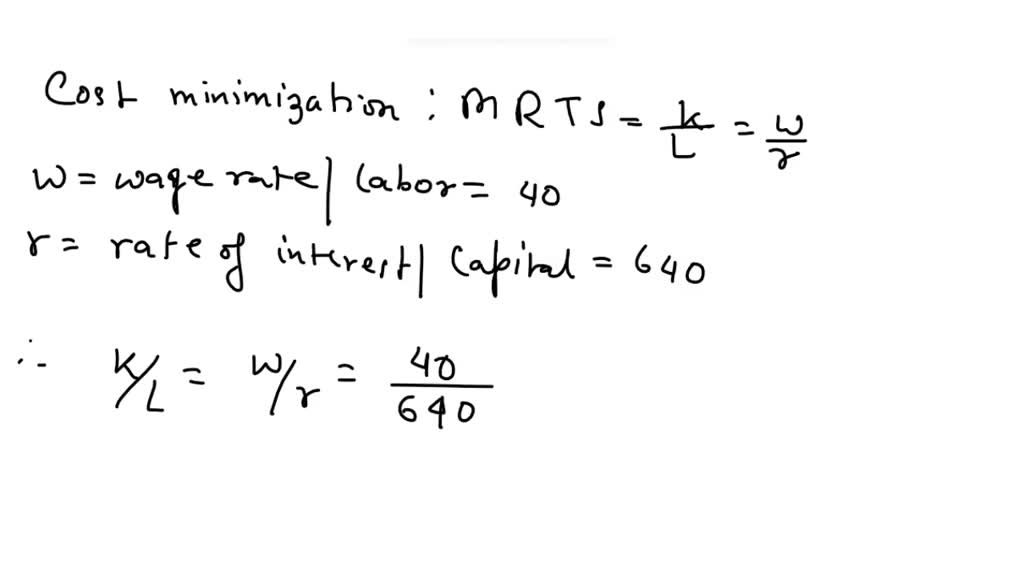 Cost minimization : MRTS = K/L = w/r
W = wage rate | labor = 40
r = rate of interest | Capital = 640
∴ K/L = W/r = 40/640